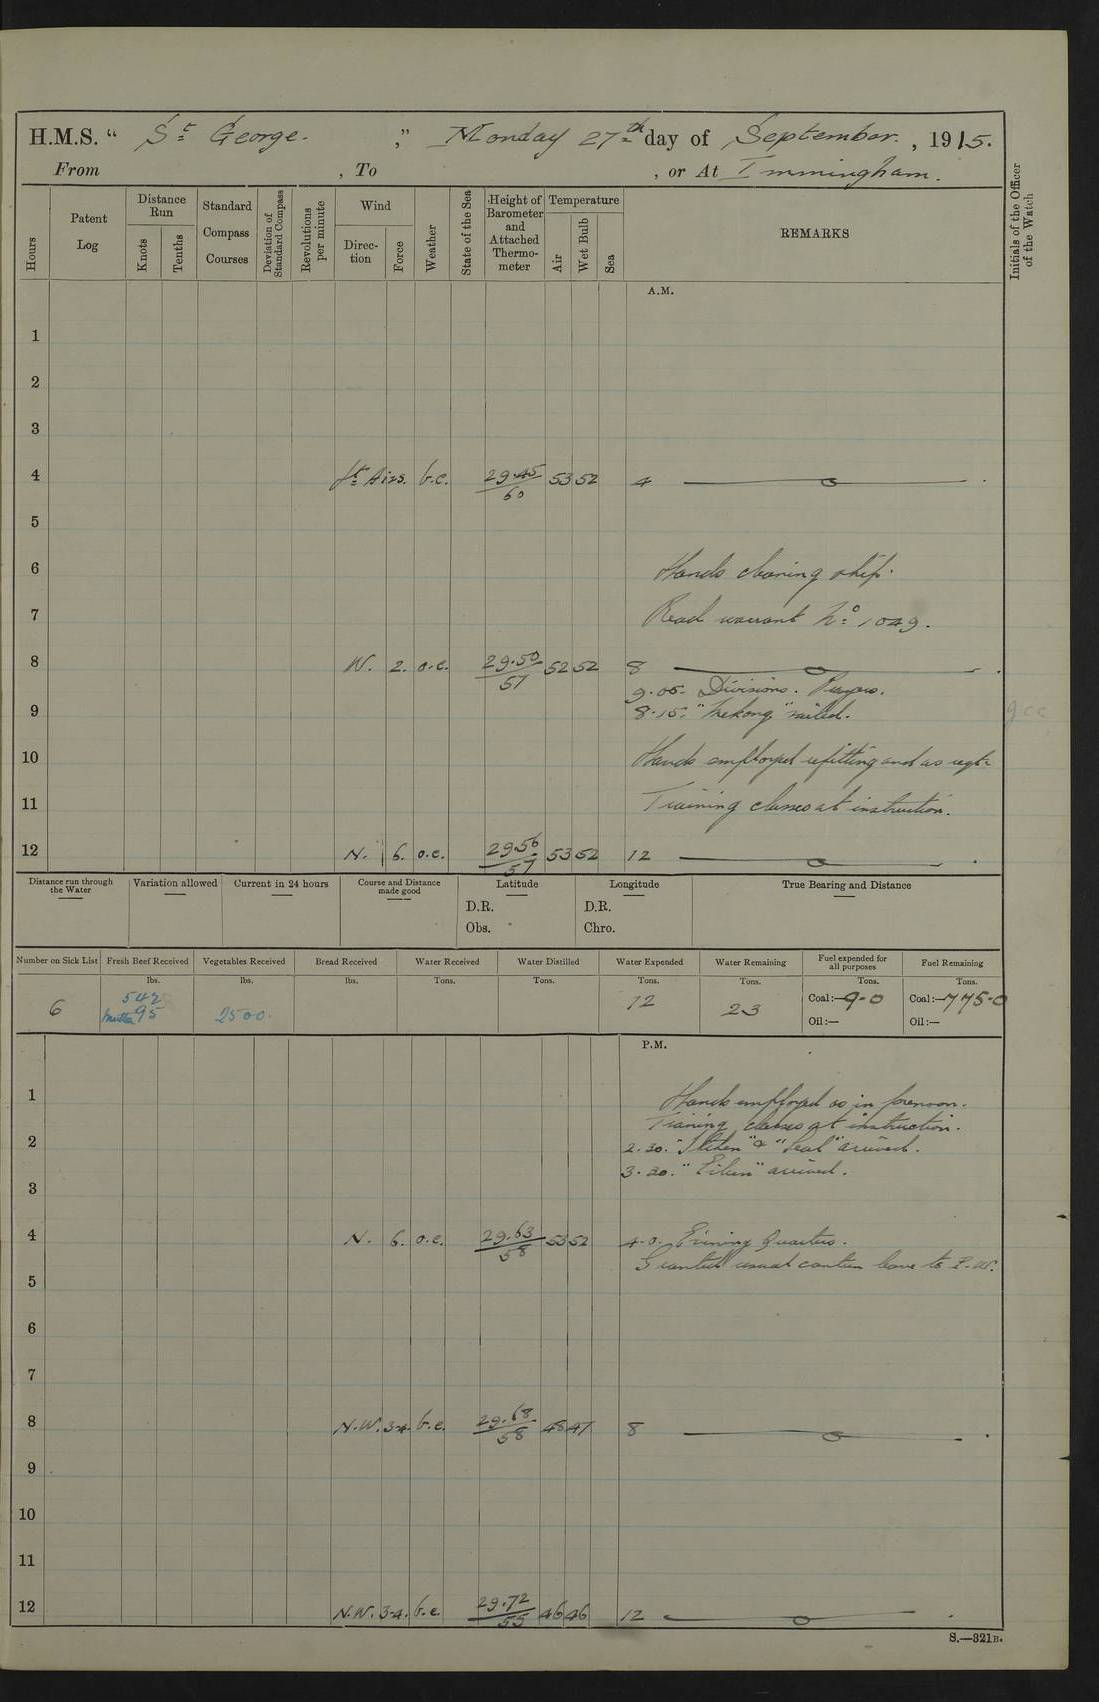 H.M.S. " St George. " Monday 27th day of September. , 1915.
From , To , or At Immingham.
Hours
Patent Log
Distance Run
Knots
Tenths
Standard Compass Courses
Deviation of Standard Compass
Revolutions per minute
Wind
Direc-tion
Force
Weather
State of the Sea
Height of Barometer and Attached Thermo-meter
Temperature
Air
Wet Bulb
Sea
REMARKS
Initials of the Officer of the Watch
A.M.
1
2
3
4 Lt Airs. b.c. 29.45/60 53 52 4
5
6 Hands cleaning ship.
7 Read warrant No 1049.
8 W. 2. o.c. 29.50/57 52 52 8
9.05. Divisions. Prayers.
9 8.15. "Mekong" sailed.
10 Hands employed refitting and as reqte
11 Training classes at instruction.
12 N. 6. o.c. 29.56/57 53 52 12
Distance run through the Water
Variation allowed
Current in 24 hours
Course and Distance made good
Latitude
D.R.
Obs.
Longitude
D.R.
Chro.
True Bearing and Distance
Number on Sick List
Fresh Beef Received
Vegetables Received
Bread Received
Water Received
Water Distilled
Water Expended
Water Remaining
Fuel expended for all purposes
Fuel Remaining
lbs. lbs. lbs. Tons. Tons. Tons. Tons. Tons. Tons.
6 542 2500. 12 23 Coal:—9-0 Coal:—775-0
Mutton 95 Oil:— Oil:—
P.M.
1 Hands employed as in forenoon.
Training classes at instruction.
2 2.30. "Itchen" & "Seal" arrived.
3.30. arrived.
3
4 N. 6. o.c. 29.63/58 53 52 4-0. Evening Quarters.
Granted usual canteen leave to P.W.
5
6
7
8 N.W. 3-4. b.c. 29.68/58 48 47 8
9
10
11
12 N.W. 3-4. b.c. 29.72/55 46 46 12
S.—321B.